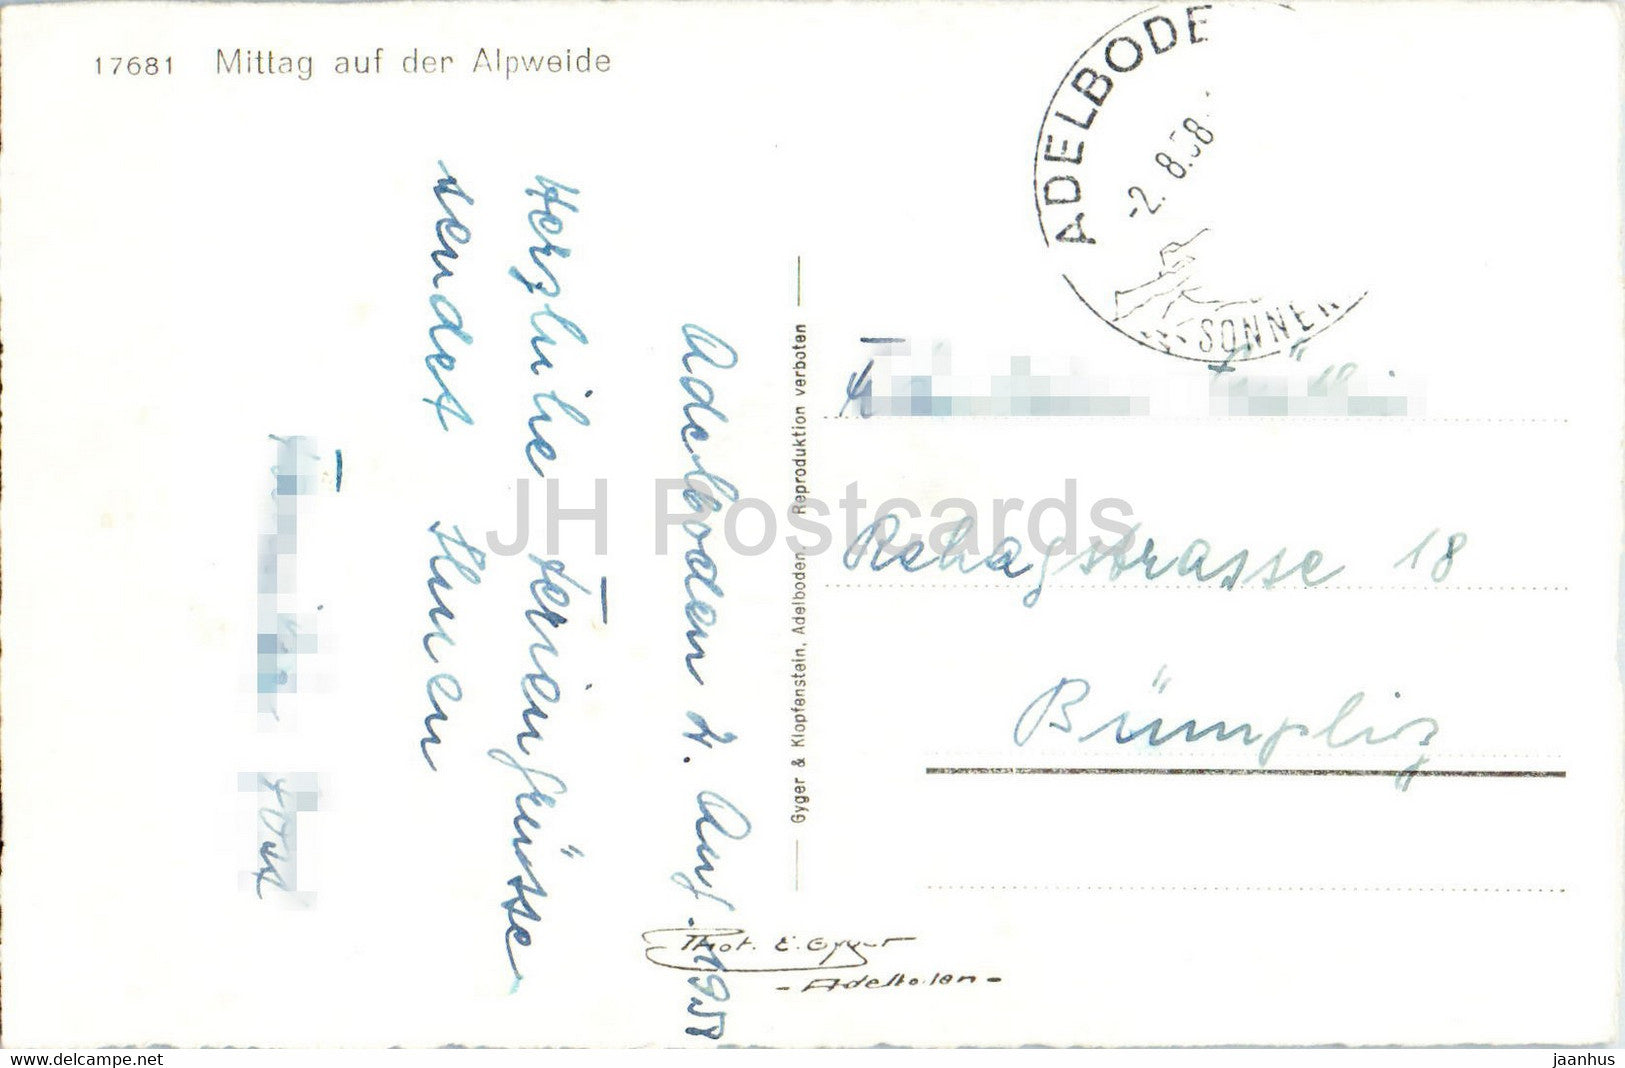 17681 Mittag auf der Alpweide
ADELBODE
-2. 8.58
SONNEN
Adelboden 2. Aug. 1958
Herzliche Feriengrüsse
sendet Ihnen
Gyger & Klopfenstein, Adelboden. Reproduktion verboten
Rehagstrasse 18
Bümpliz
Phot. E. Gyger
- Adelboden -
JH Postcards
delcampe.net
jaanhus